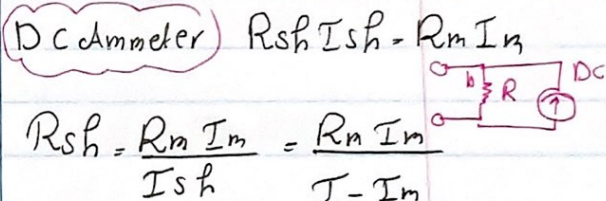 DC Ammeter Rsh Ish = Rm Im
DC
R
Rsh = Rm Im / Ish = Rm Im / I - Im